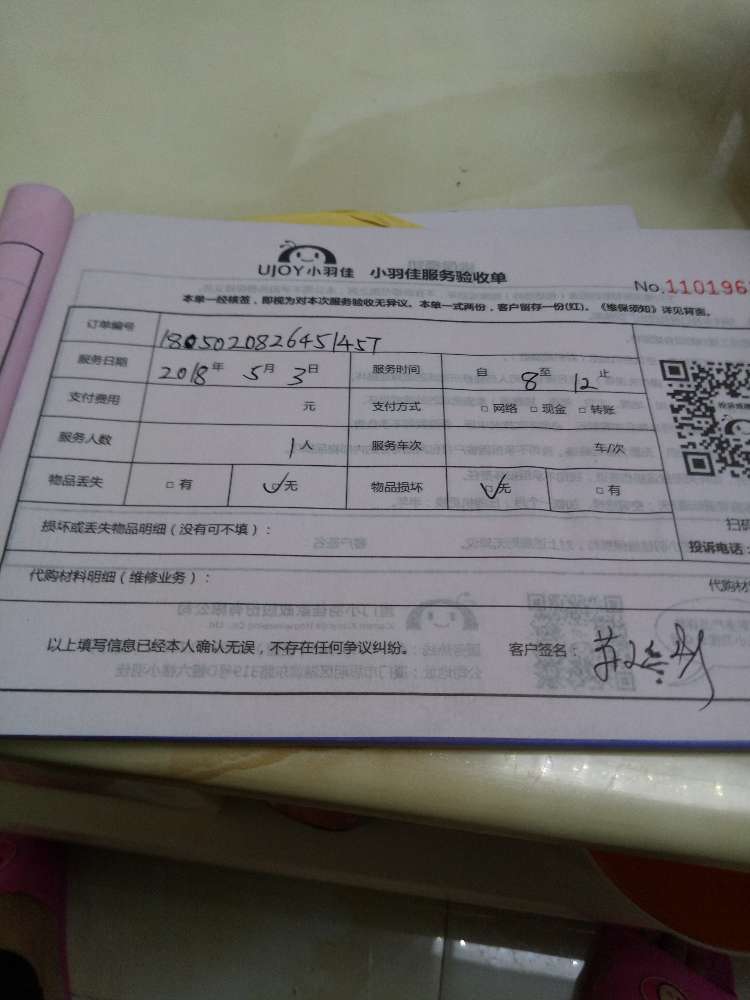 UJOY小羽佳 小羽佳服务验收单
No.110196
本单一经核签，即视为对本次服务验收无异议。本单一式两份，客户留存一份(红)。《维保须知》详见背面。
订单编号 180502082645145T
服务日期 2018年 5月 3日 服务时间 自 8至 12止
支付费用 元 支付方式 □网络 □现金 □转账
服务人数 1人 服务车次 车/次
物品丢失 □有 ☑无 物品损坏 ☑无 □有
损坏或丢失物品明细（没有可不填）： 投诉电话：
代购材料明细（维修业务）： 代购材
以上填写信息已经本人确认无误，不存在任何争议纠纷。 客户签名：